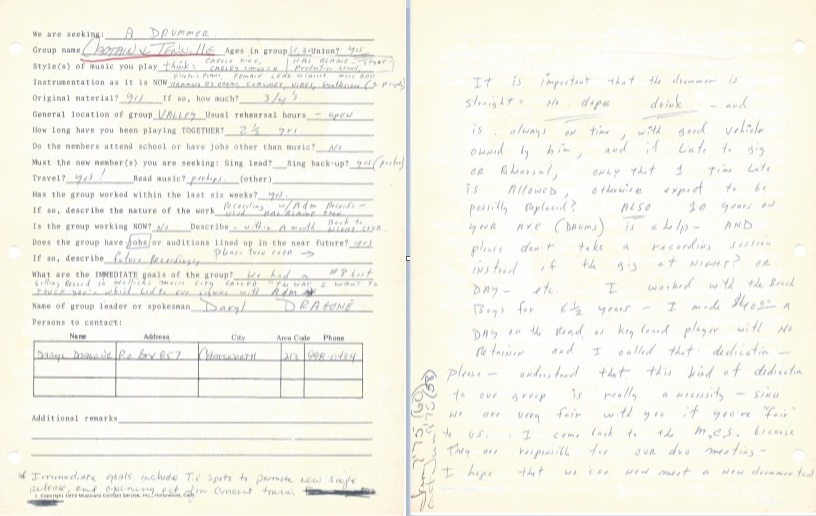 We are seeking: A DRUMMER
Group name CAPTAIN & TENNILLE Ages in group Union? yes
Style(s) of music you play think: CAROLE KING, HAL BLAINE
Instrumentation as it is NOW FEMALE LEAD VOCALIST
Original material? yes If so, how much? 3/4's
General location of group VALLEY Usual rehearsal hours - OPEN
How long have you been playing TOGETHER? 2 1/2 yrs
Do the members attend school or have jobs other than music? No
Must the new member(s) you are seeking: Sing lead? Sing back-up? yes
Travel? yes! Read music? perhaps (other)
Has the group worked within the last six weeks? yes.
If so, describe the nature of the work Recording w/A&M Records - HAL BLAINE
Is the group working NOW? No Describe - within A month Back to
Does the group have jobs or auditions lined up in the near future? yes
Please turn over →
If so, describe future Recordings
What are the IMMEDIATE goals of the group? We had a #8 best
selling Record in music city CALLED "THE WAY I WANT TO
which led to our with A&M *
Name of group leader or spokesman Daryl DRAGONE
Persons to contact:
Name Address City Area Code Phone
Daryl Dragone P.o. Box 857 CHATSWORTH 213
Additional remarks
* Immediate goals include T.V. Spots to promote new single
release, and opening act for Concert tours.
© Copyright 1973 Musicians Contact Service, Inc., Hollywood, Calif.
It is important that the drummer is
straight - No dope drink - and
is always on time, with good vehicle
owned by him, and if Late to gig
OR Rehearsal, only THAT 1 Time Late
is Allowed, otherwise expect to be
possibly Replaced? ALSO 10 years on
your AXE (DRUMS) is a help - AND
please don't take a recording session
instead of the gig at NIGHT? OR
DAY - etc. I worked with the Beach
Boys for 6 1/2 years - I made $40.00 A
DAY on the Road as keyboard player with No
Retainer and I called that dedication -
please - understand that this kind of dedication
to our group is really a necessity - since
we are very fair with you if you're "fair"
to us. I come back to the M.C.S. because
they are responsible for our duo meeting -
I hope that we can now meet a new drummer too!